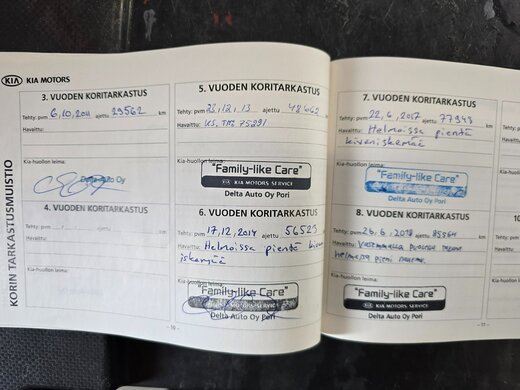 KIA KIA MOTORS
KORIN TARKASTUSMUISTIO
3. VUODEN KORITARKASTUS
Tehty: pvm 6,10,2011 ajettu 29562 km
Havaittu:
Kia-huollon leima:
Delta Auto Oy
4. VUODEN KORITARKASTUS
Tehty: pvm ajettu km
Havaittu:
Kia-huollon leima:
- 10 -
5. VUODEN KORITARKASTUS
Tehty: pvm 23,12,13 ajettu 48062 km
Havaittu:
Kia-huollon leima:
"Family-like Care"
KIA MOTORS SERVICE
Delta Auto Oy Pori
6. VUODEN KORITARKASTUS
Tehty: pvm 17,12,2014 ajettu 56523 km
Havaittu: Helmoissa pientä kiven
iskemää
Kia-huollon leima:
"Family-like Care"
KIA MOTORS SERVICE
Delta Auto Oy Pori
7. VUODEN KORITARKASTUS
Tehty: pvm 22,6,2017 ajettu 77948 km
Havaittu: Helmoissa pientä
kiveniskemää
Kia-huollon leima:
"Family-like Care"
KIA MOTORS SERVICE
Delta Auto Oy Pori
8. VUODEN KORITARKASTUS
Tehty: pvm 26,6,2018 ajettu 85564 km
Havaittu: Vasemmassa
helmassa pieni
Kia-huollon leima:
"Family-like Care"
KIA MOTORS SERVICE
Delta Auto Oy Pori
- 11 -